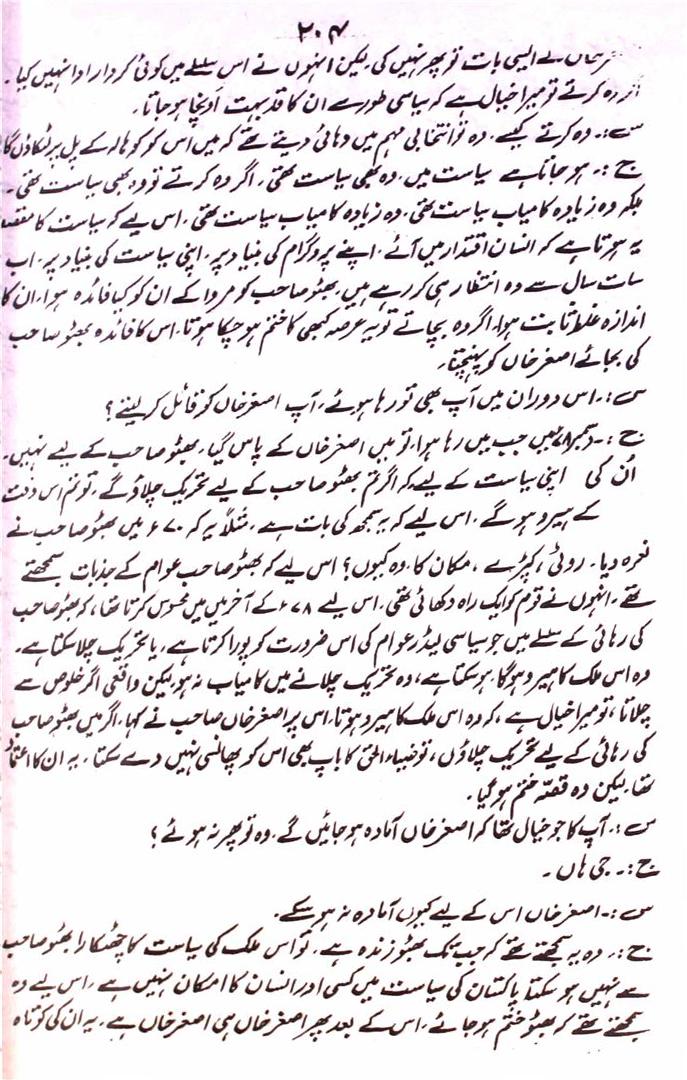 ۲۰۴
خاں نے ایسی بات تو پھر نہیں کی لیکن انہوں نے اس سلسلے میں کوئی کردار ادا نہیں کیا۔
وہ کرتے تو میرا خیال ہے کہ سیاسی طور سے ان کا قد بہت اونچا ہو جاتا۔
س:۔ وہ کرتے کیسے۔ وہ تو انتخابی مہم میں دہائی دیتے تھے کہ میں اس کو کوہالہ کے پل پر لٹکاؤں گا
ج:۔ ہو جاتا ہے سیاست میں۔ وہ بھی سیاست تھی۔ اگر وہ کرتے تو وہ بھی سیاست تھی۔
بلکہ وہ زیادہ کامیاب سیاست تھی۔ وہ زیادہ کامیاب سیاست تھی۔ اس لیے کہ سیاست کا مقصد
یہ ہوتا ہے کہ انسان اقتدار میں آئے۔ اپنے پروگرام کی بنیاد پر۔ اپنی سیاست کی بنیاد پر۔ اب
سات سال سے وہ انتظار ہی کر رہے ہیں۔ بھٹو صاحب کو مروا کے ان کو کیا فائدہ ہوا۔ ان کا
اندازہ غلط ثابت ہوا۔ اگر وہ بچاتے تو یہ عرصہ کبھی کا ختم ہو چکا ہوتا۔ اس کا فائدہ بھٹو صاحب
کی بجائے اصغر خاں کو پہنچتا۔
س:۔ اس دوران میں آپ بھی تو رہا ہوئے۔ آپ اصغر خاں کو قائل کر لیتے؟
ج:۔ دسمبر ۷۸ میں جب میں رہا ہوا۔ تو میں اصغر خاں کے پاس گیا۔ بھٹو صاحب کے لیے نہیں۔
اُن کی اپنی سیاست کے لیے کہ اگر تم بھٹو صاحب کے لیے تحریک چلاؤ گے۔ تو تم اس وقت
کے ہیرو ہو گے۔ اس لیے کہ یہ سمجھ کی بات ہے۔ مثلاً یہ کہ ۷۰ء میں بھٹو صاحب نے
نعرہ دیا۔ روٹی، کپڑے، مکان کا۔ وہ کیوں؟ اس لیے کہ بھٹو صاحب عوام کے جذبات سمجھتے
تھے۔ انہوں نے قوم کو ایک راہ دکھائی تھی۔ اس لیے ۷۸ء کے آخر میں میں محسوس کرتا تھا، کہ بھٹو صاحب
کی رہائی کے سلسلے میں جو سیاسی لیڈر عوام کی اس ضرورت کو پورا کرتا ہے۔ یا تحریک چلا سکتا ہے۔
وہ اس ملک کا ہیرو ہو گا۔ ہو سکتا ہے، وہ تحریک چلانے میں کامیاب نہ ہو۔ لیکن واقعی اگر خلوص سے
چلاتا، تو میرا خیال ہے، کہ وہ اس ملک کا ہیرو ہوتا۔ اس پر اصغر خاں صاحب نے کہا۔ اگر میں بھٹو صاحب
کی رہائی کے لیے تحریک چلاؤں، تو ضیاء الحق کا باپ بھی اس کو پھانسی نہیں دے سکتا۔ یہ ان کا اعتماد
تھا۔ لیکن وہ قصّہ ختم ہو گیا۔
س:۔ آپ کا جو خیال تھا کہ اصغر خاں آمادہ ہو جائیں گے۔ وہ تو پھر نہ ہوئے؟
ج:۔ جی ہاں۔
س:۔ اصغر خاں اس کے لیے کیوں آمادہ نہ ہو سکے۔
ج:۔ وہ یہ سمجھتے تھے کہ جب تک بھٹو زندہ ہے۔ تو اس ملک کی سیاست کا چھٹکارا بھٹو صاحب
سے نہیں ہو سکتا پاکستان کی سیاست میں کسی اور انسان کا امکان نہیں ہے۔ اس لیے وہ
سمجھتے تھے کہ بھٹو ختم ہو جائے۔ اس کے بعد پھر اصغر خاں ہی اصغر خاں ہے۔ یہ ان کی کوتاہ